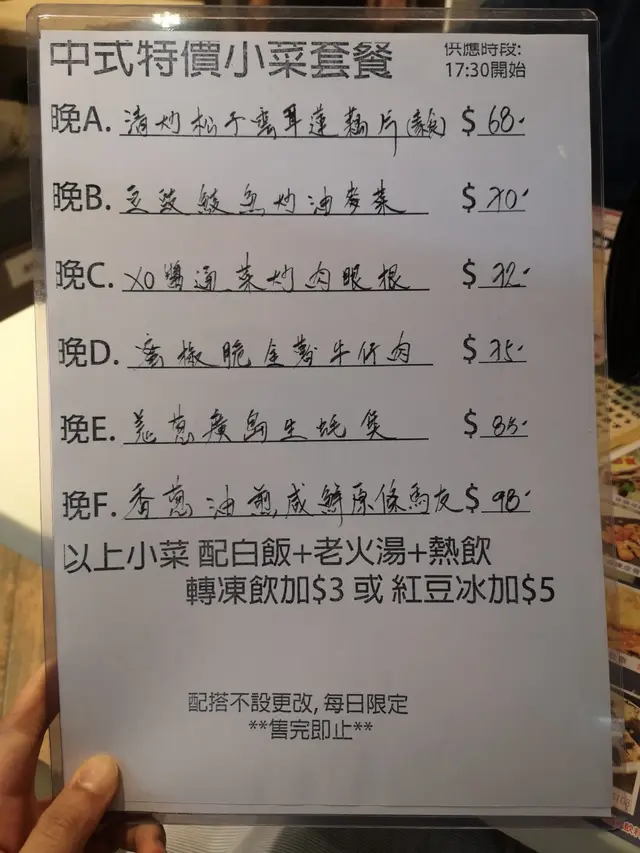 中式特價小菜套餐
供應時段:
17:30開始
晚A. 清炒松子雲耳蓮藕片(素食) $ 68.
晚B. 豆豉鯪魚炒油麥菜 $ 70.
晚C. XO醬通菜炒肉眼根 $ 72.
晚D. 蜜椒脆金蒜牛仔肉 $ 75.
晚E. 羌蔥廣島生蚝煲 $ 85.
晚F. 香蔥油煎咸鮮原條馬友 $ 98.
以上小菜 配白飯+老火湯+熱飲
轉凍飲加$3 或 紅豆冰加$5
配搭不設更改, 每日限定
**售完即止**